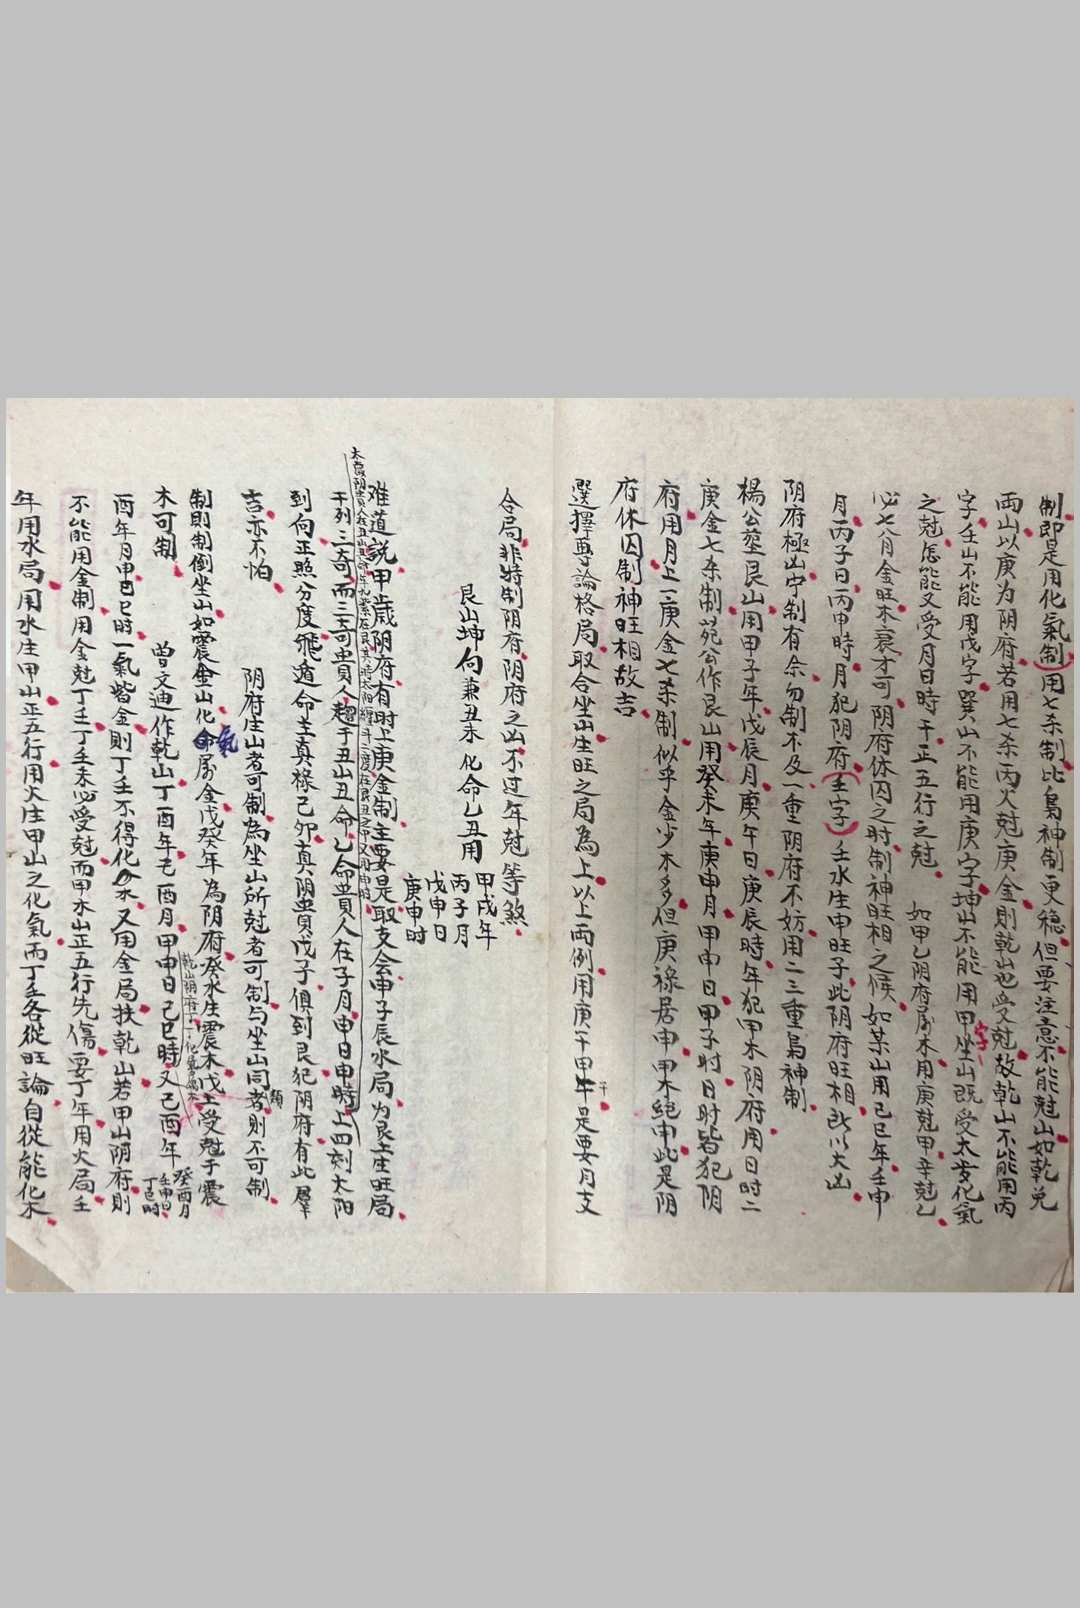 制即是用化氣制用七杀制比梟神制更稳但要注意不能尅山如乾兑
兩山以庚为阴府若用七杀丙火尅庚金則乾山也受尅故乾山不能用丙
字壬山不能用戊字巽山不能用庚字坤山不能用甲字坐山既受太岁化氣
之尅怎能又受月日時干正五行之尅 如甲乙阴府属木用庚尅甲辛尅乙
必七八月金旺木衰才可阴府休囚之时制神旺相之候如某山用己巳年壬申
月丙子日丙申時月犯阴府(壬字)壬水生申旺子此阴府旺相所以大凶
阴府極凶宁制有余勿制不及一重阴府不妨用二三重梟神制
楊公塟艮山用甲子年戊辰月庚午日庚辰時年犯甲木阴府用日时二
庚金七杀制范公作艮山用癸未年庚申月甲申日甲子时日时皆犯阴
府用月上一庚金七杀制似乎金少木多但庚禄居申甲木絕申此是阴
府休囚制神旺相故吉
選擇尊論格局取合坐山生旺之局為上以上兩例用庚干甲干是要月支
合局非特制阴府阴府之凶不过年尅等煞
艮山坤向兼丑未化命乙丑用
甲戌年
丙子月
戊申日
庚申时
难道説甲歲阴府有时上庚金制主要是取支会申子辰水局为艮土生旺局
干列三奇而三奇貴人趨于丑山丑命乙命貴人在子月申日申時上四刻太阳
到向正照分度飛遁命主真禄己卯真阴貴戊子俱到艮犯阴府有此羣
吉亦不怕 阴府生山者可制為坐山所尅者可制与坐山同類者則不可制
制則制倒坐山如震山化氣属金戊癸年為阴府癸水生震木戊土受尅于震
木可制 曾文迪作乾山丁酉年己酉月甲申日己巳時又己酉年
癸酉月
壬申日
丁巳时
乾山阴府丁丁化氣属木
酉年月申巳巳时一氣皆金則丁壬不得化木又用金局扶乾山若甲山阴府則
不能用金制用金尅丁壬丁壬未必受尅而甲木山正五行先傷要丁年用火局壬
年用水局用水生甲山正五行用火生甲山之化氣而丁壬各從旺論自從能化木